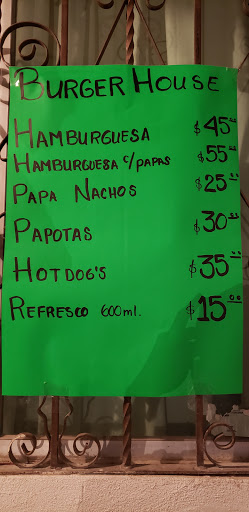 BURGER HOUSE
HAMBURGUESA $45.00
HAMBURGUESA c/PAPAS $55.00
PAPA NACHOS $25.00
PAPOTAS $30.00
HOTDOG'S $35.00
REFRESCO 600ml. $15.00